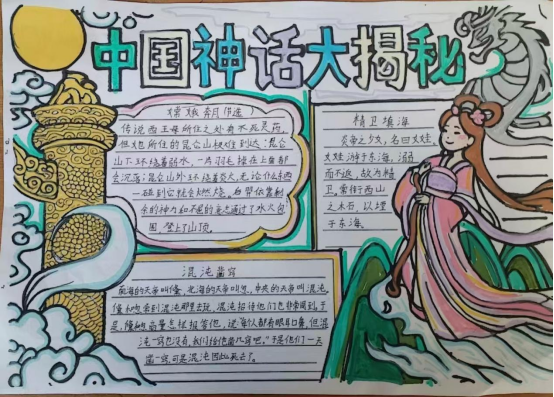 中国神话大揭秘
嫦娥奔月(节选)
传说西王母所住之处有不死灵药,
但她所住的昆仑山极难到达:昆仑
山下环绕着弱水,一片羽毛掉在上面都
会沉落;昆仑山外环绕着炎火,无论什么东西
一碰到它就会燃烧。后羿依靠剩
余的神力和不屈的意志通过了水火包
围,登上了山顶。
精卫填海
炎帝之少女,名曰女娃。
女娃游于东海,溺
而不返,故为精
卫,常衔西山
之木石,以堙
于东海。
混沌凿窍
南海的天帝叫儵,北海的天帝叫忽,中央的天帝叫混沌。
儵和忽来到混沌那里去玩,混沌招待他们
是,儵和忽商量怎样报答他,说:每个人都有眼耳口鼻,但混
沌一窍也没有,我们给他凿几窍吧。"于是他们一天
凿一窍,可是混沌因此死去了。